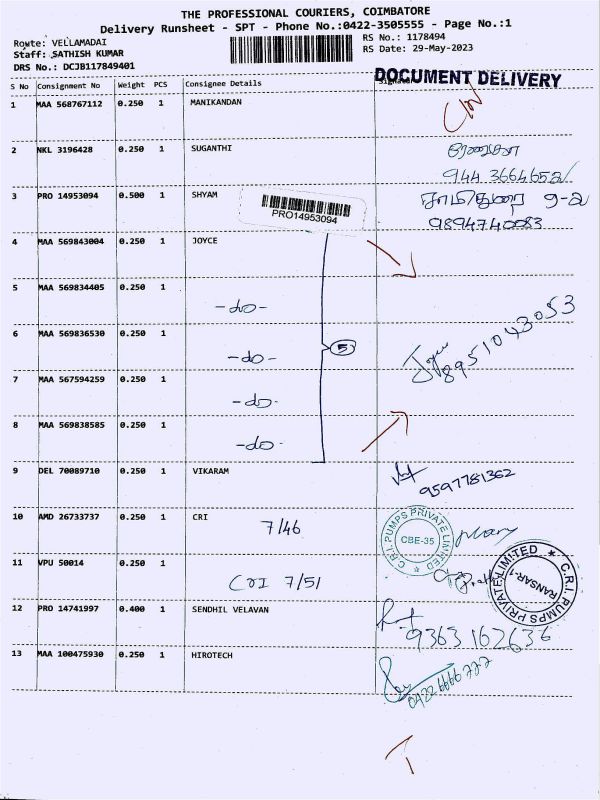 THE PROFESSIONAL COURIERS, COIMBATORE
Delivery Runsheet - SPT - Phone No.:0422-3505555 - Page No.:1
Route: VELLAMADAI
RS No.: 1178494
Staff: SATHISH KUMAR
RS Date: 29-May-2023
DRS No.: DCJB117849401
DOCUMENT DELIVERY
S No Consignment No Weight PCS Consignee Details
1 MAA 568767112 0.250 1 MANIKANDAN
2 NKL 3196428 0.250 1 SUGANTHI
944 3664652
3 PRO 14953094 0.500 1 SHYAM
PRO14953094
9894740083
4 MAA 569843004 0.250 1 JOYCE
5 MAA 569834405 0.250 1 -do-
6 MAA 569836530 0.250 1 -do- 5 Joyce 8951043053
7 MAA 567594259 0.250 1 -do-
8 MAA 569838585 0.250 1 -do-
9 DEL 70089710 0.250 1 VIKARAM 9597781362
10 AMD 26733737 0.250 1 CRI 7/46
C.R.I. PUMPS PRIVATE LIMITED
CBE-35
11 VPU 50014 0.250 1 CRI 7/51
C.R.I. PUMPS PRIVATE LIMITED
RANSAR-1
12 PRO 14741997 0.400 1 SENDHIL VELAVAN
9363162636
13 MAA 100475930 0.250 1 HIROTECH
0422 6666 777